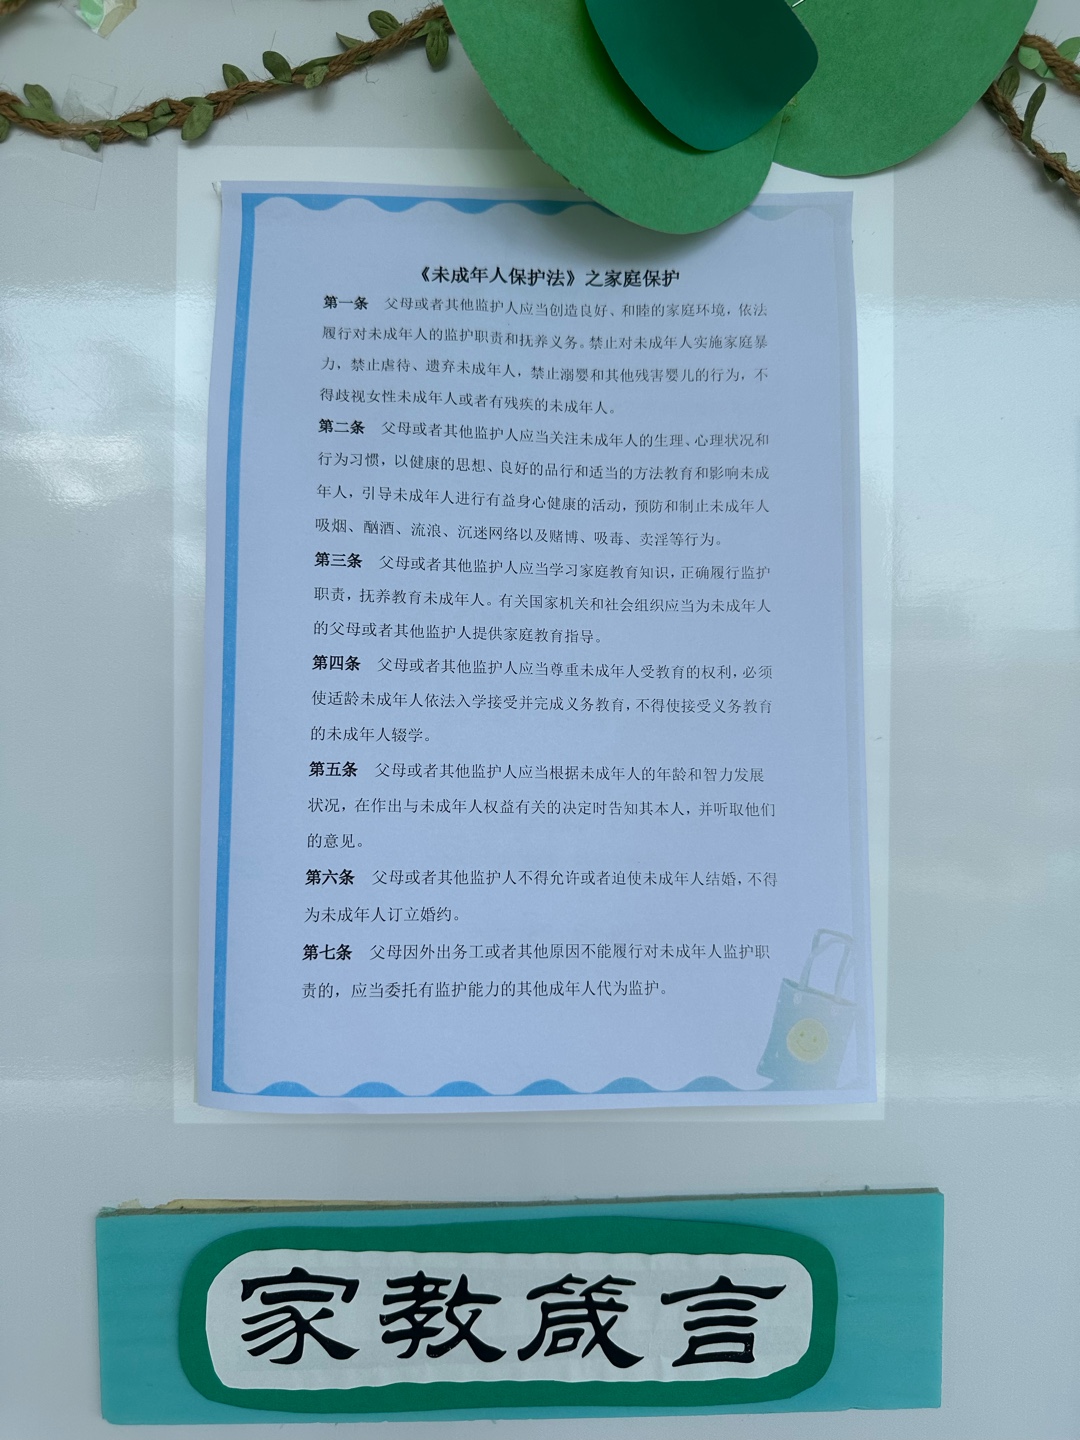 《未成年人保护法》之家庭保护
第一条　父母或者其他监护人应当创造良好、和睦的家庭环境，依法
履行对未成年人的监护职责和抚养义务。禁止对未成年人实施家庭暴
力，禁止虐待、遗弃未成年人，禁止溺婴和其他残害婴儿的行为，不
得歧视女性未成年人或者有残疾的未成年人。
第二条　父母或者其他监护人应当关注未成年人的生理、心理状况和
行为习惯，以健康的思想、良好的品行和适当的方法教育和影响未成
年人，引导未成年人进行有益身心健康的活动，预防和制止未成年人
吸烟、酗酒、流浪、沉迷网络以及赌博、吸毒、卖淫等行为。
第三条　父母或者其他监护人应当学习家庭教育知识，正确履行监护
职责，抚养教育未成年人。有关国家机关和社会组织应当为未成年人
的父母或者其他监护人提供家庭教育指导。
第四条　父母或者其他监护人应当尊重未成年人受教育的权利，必须
使适龄未成年人依法入学接受并完成义务教育，不得使接受义务教育
的未成年人辍学。
第五条　父母或者其他监护人应当根据未成年人的年龄和智力发展
状况，在作出与未成年人权益有关的决定时告知其本人，并听取他们
的意见。
第六条　父母或者其他监护人不得允许或者迫使未成年人结婚，不得
为未成年人订立婚约。
第七条　父母因外出务工或者其他原因不能履行对未成年人监护职
责的，应当委托有监护能力的其他成年人代为监护。
家教箴言